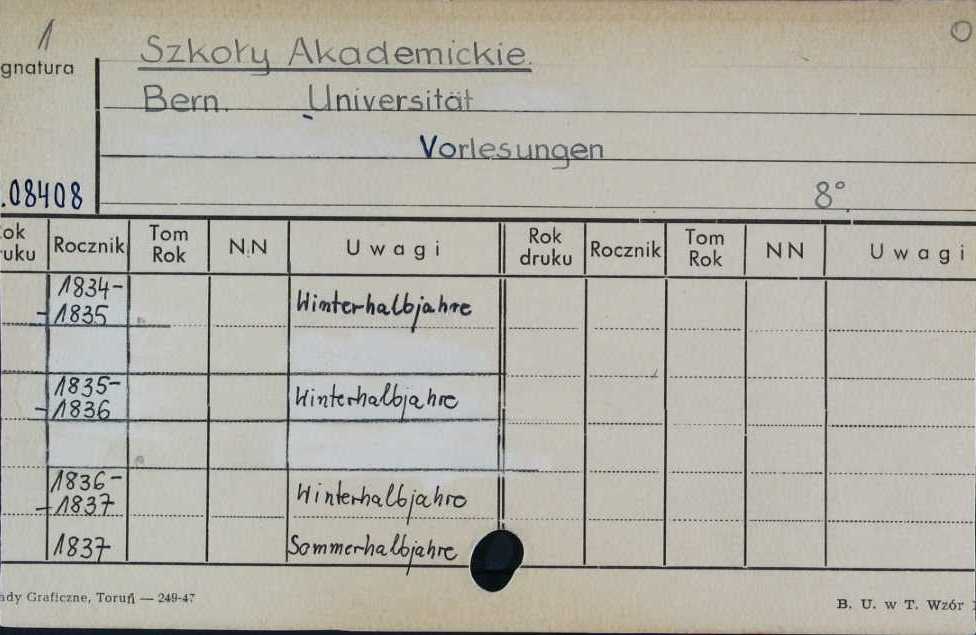 1
O
Szkoły Akademickie.
gnatura
Bern. Universität
Vorlesungen
.08408
8°
ok
uku
Rocznik
Tom
Rok
N.N
Uwagi
Rok
druku
Rocznik
Tom
Rok
NN
Uwagi
1834-
-1835
Winterhalbjahre
1835-
-1836
Winterhalbjahre
1836-
-1837
Winterhalbjahre
1837
Sommerhalbjahre
ady Graficzne, Toruń — 249-47
B. U. w T. Wzór